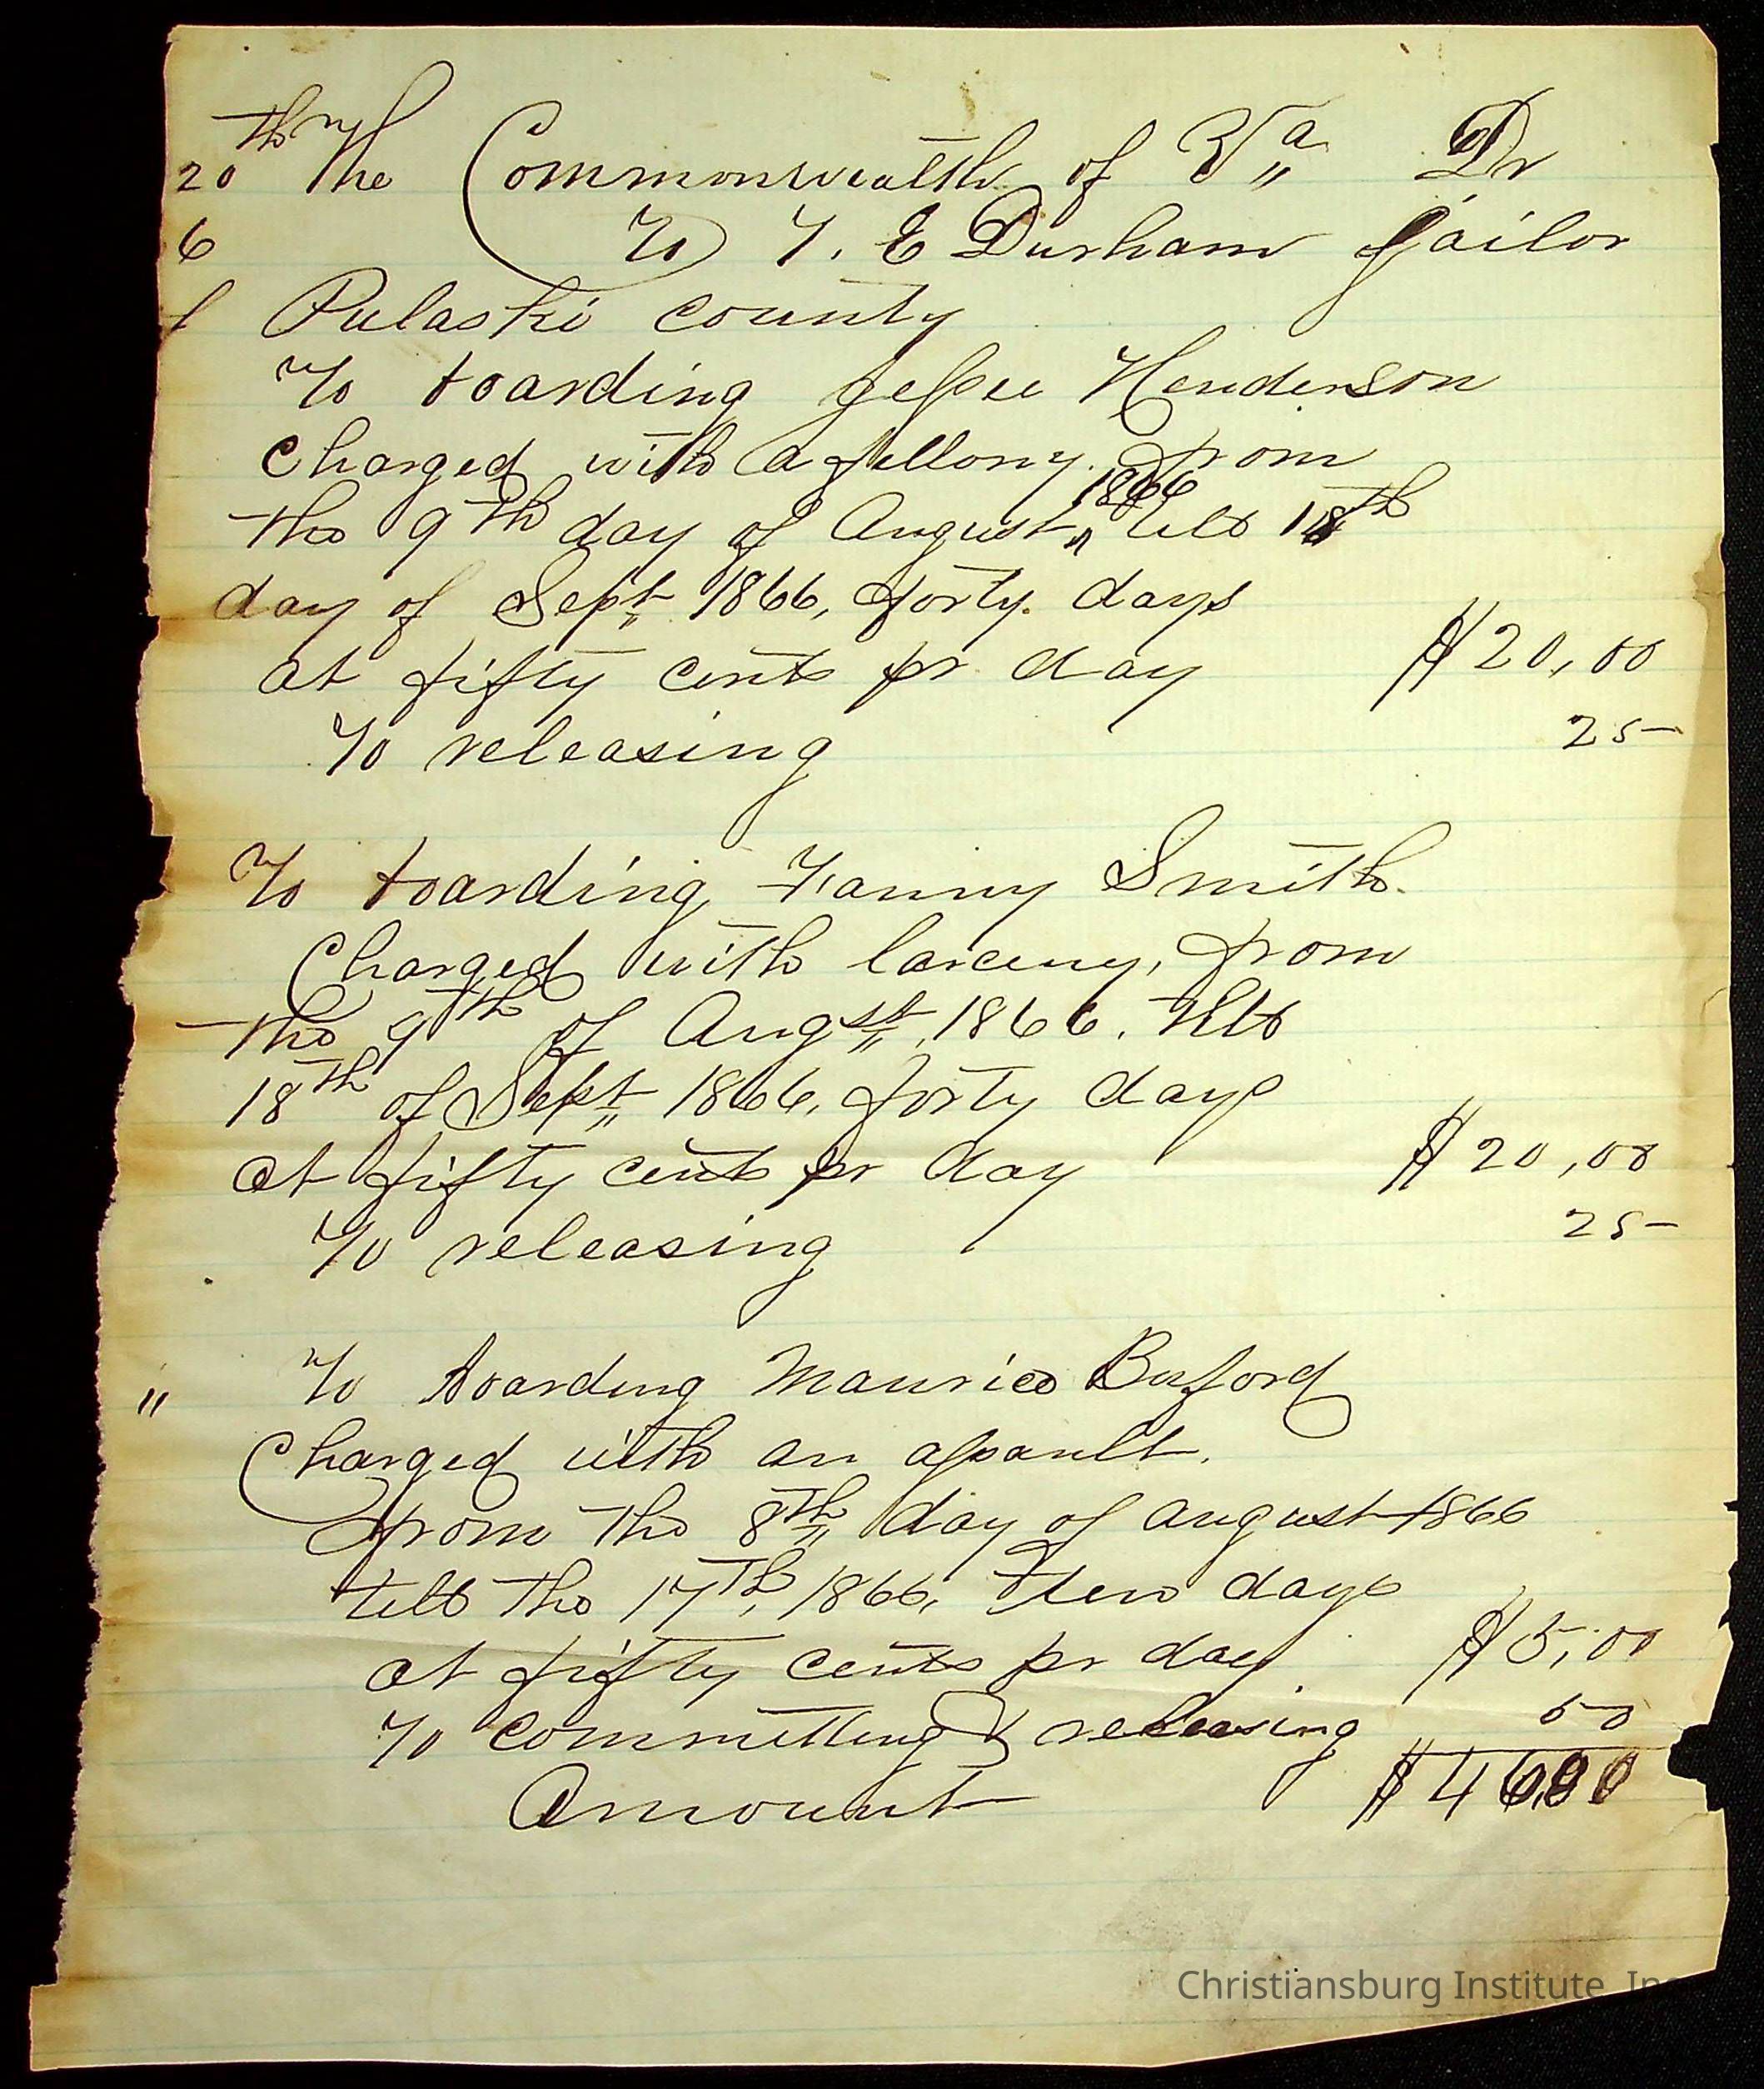 20th The Commonwealth of Va Dr
6 To T. E Durham Jailor
f Pulaski county
To boarding Jessee Henderson
charged with a fellony. from
the 9th day of August 1866 till 18th
day of Sept 1866, forty. days
at fifty cents pr day $20,00
To releasing 25
To boarding Fanny Smith.
Charged with larceny, from
the 9th of Augst, 1866. till
18th of Sept 1866, forty days
at fifty cents pr day $20,00
To releasing 25
" To boarding Maurice Buford
Charged with an assault.
from the 8th day of august 1866
till the 17th, 1866, Ten days
at fifty cents pr day $5,00
To committing & releasing 50
Amount $46,00
Christiansburg Institute, Inc